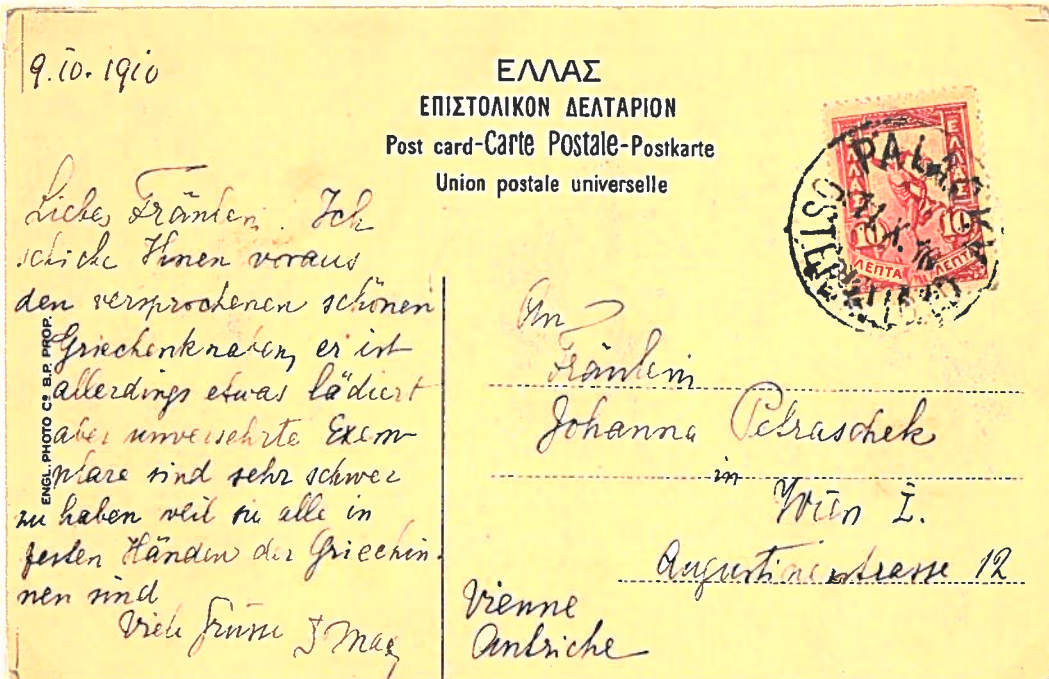 9.10.1910
ΕΛΛΑΣ
ΕΠΙΣΤΟΛΙΚΟΝ ΔΕΛΤΑΡΙΟΝ
Post card-Carte Postale-Postkarte
Union postale universelle
ΕΛΛΑΣ
ΕΛΛΑΣ
10 10
ΛΕΠΤΑ ΛΕΠΤΑ
Liebes Fräulein. Ich
schicke Ihnen voraus
den versprochenen schönen
Griechenknaben, er ist
allerdings etwas lädiert
aber unversehrte Exem-
plare sind sehr schwer
zu haben weil sie alle in
festen Händen der Griechin-
nen sind
Viele Grüsse
ENGL. PHOTO Cº B.P. PROP.
An
Fräulein
Johanna Petraschek
in
Wien I.
Augustinerstrasse 12
Vienne
Autriche